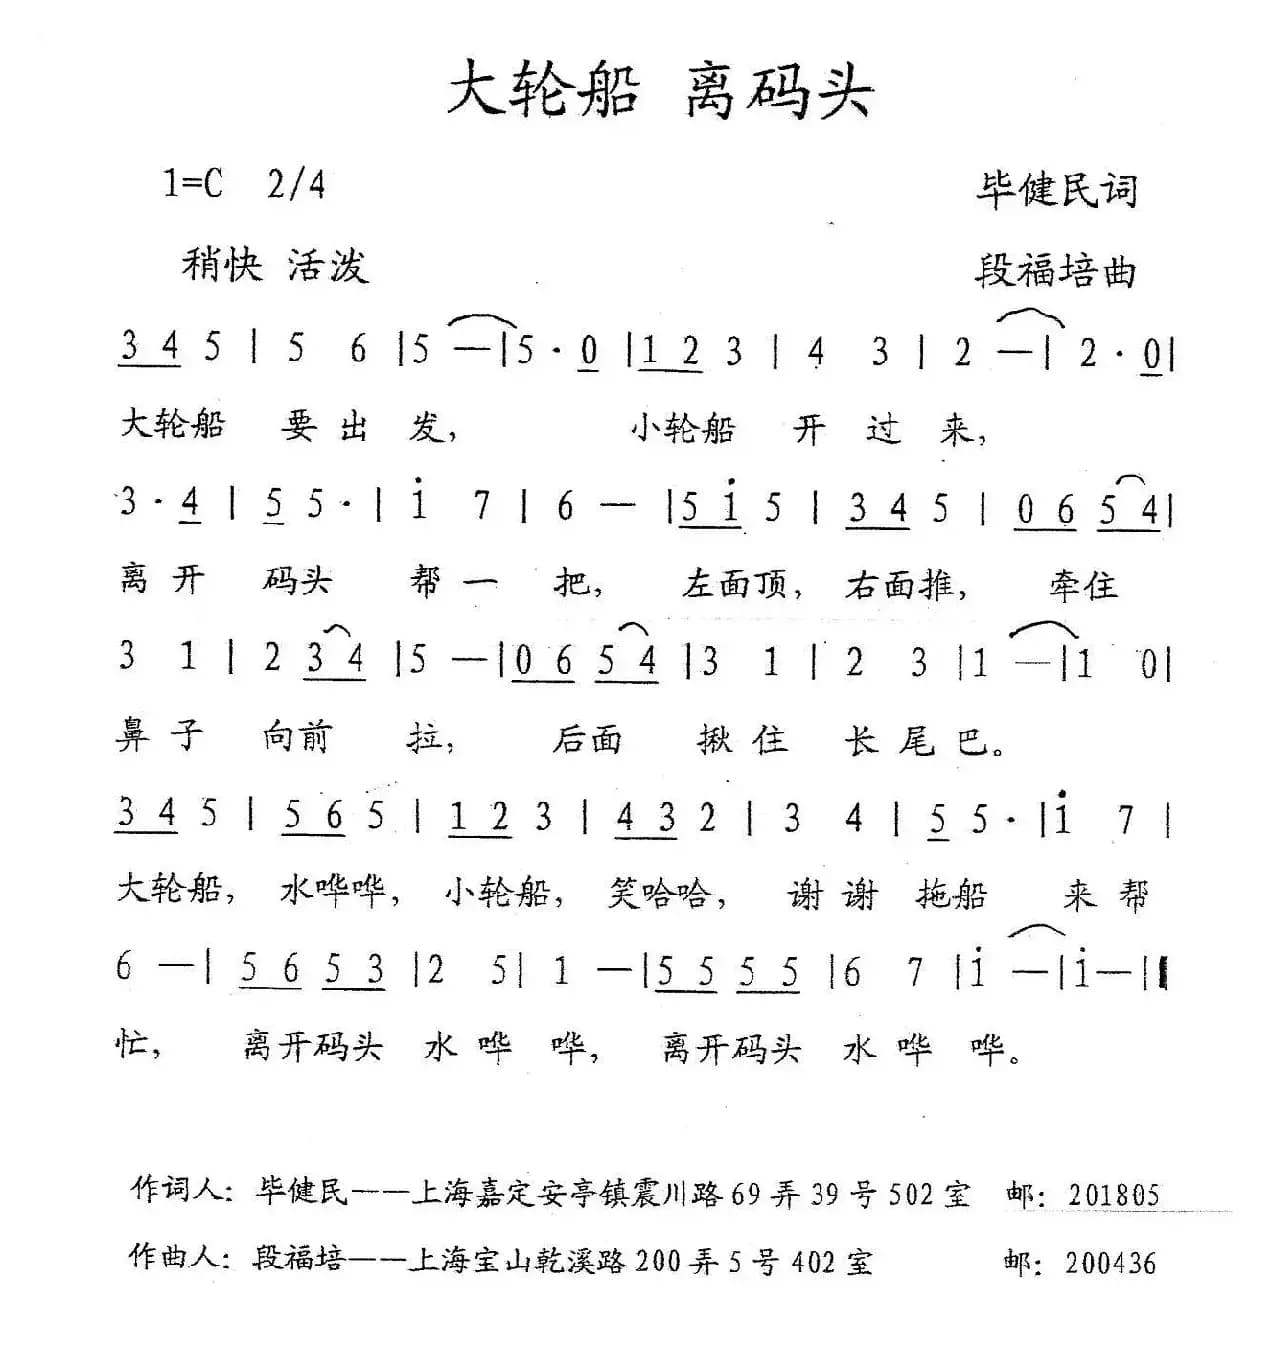 大轮船 离码头
1=C 2/4 毕健民词
稍快 活泼 段福培曲
3 4 5 | 5 6 | 5 — | 5 · 0 | 1 2 3 | 4 3 | 2 — | 2 · 0 |
大轮船 要出 发， 小轮船 开过来，
3 · 4 | 5 5 · | i 7 | 6 — | 5 i 5 | 3 4 5 | 0 6 5 4 |
离开 码头 帮一 把， 左面顶，右面推， 牵住
3 1 | 2 3 4 | 5 — | 0 6 5 4 | 3 1 | 2 3 | 1 — | 1 0 |
鼻子 向前 拉， 后面 揪住 长尾巴。
3 4 5 | 5 6 5 | 1 2 3 | 4 3 2 | 3 4 | 5 5 · | i 7 |
大轮船，水哗哗，小轮船，笑哈哈， 谢谢 拖船 来帮
6 — | 5 6 5 3 | 2 5 | 1 — | 5 5 5 5 | 6 7 | i — | i — ‖
忙， 离开码头 水哗 哗， 离开码头 水哗 哗。
作词人：毕健民——上海嘉定安亭镇震川路69弄39号502室 邮：201805
作曲人：段福培——上海宝山乾溪路200弄5号402室 邮：200436